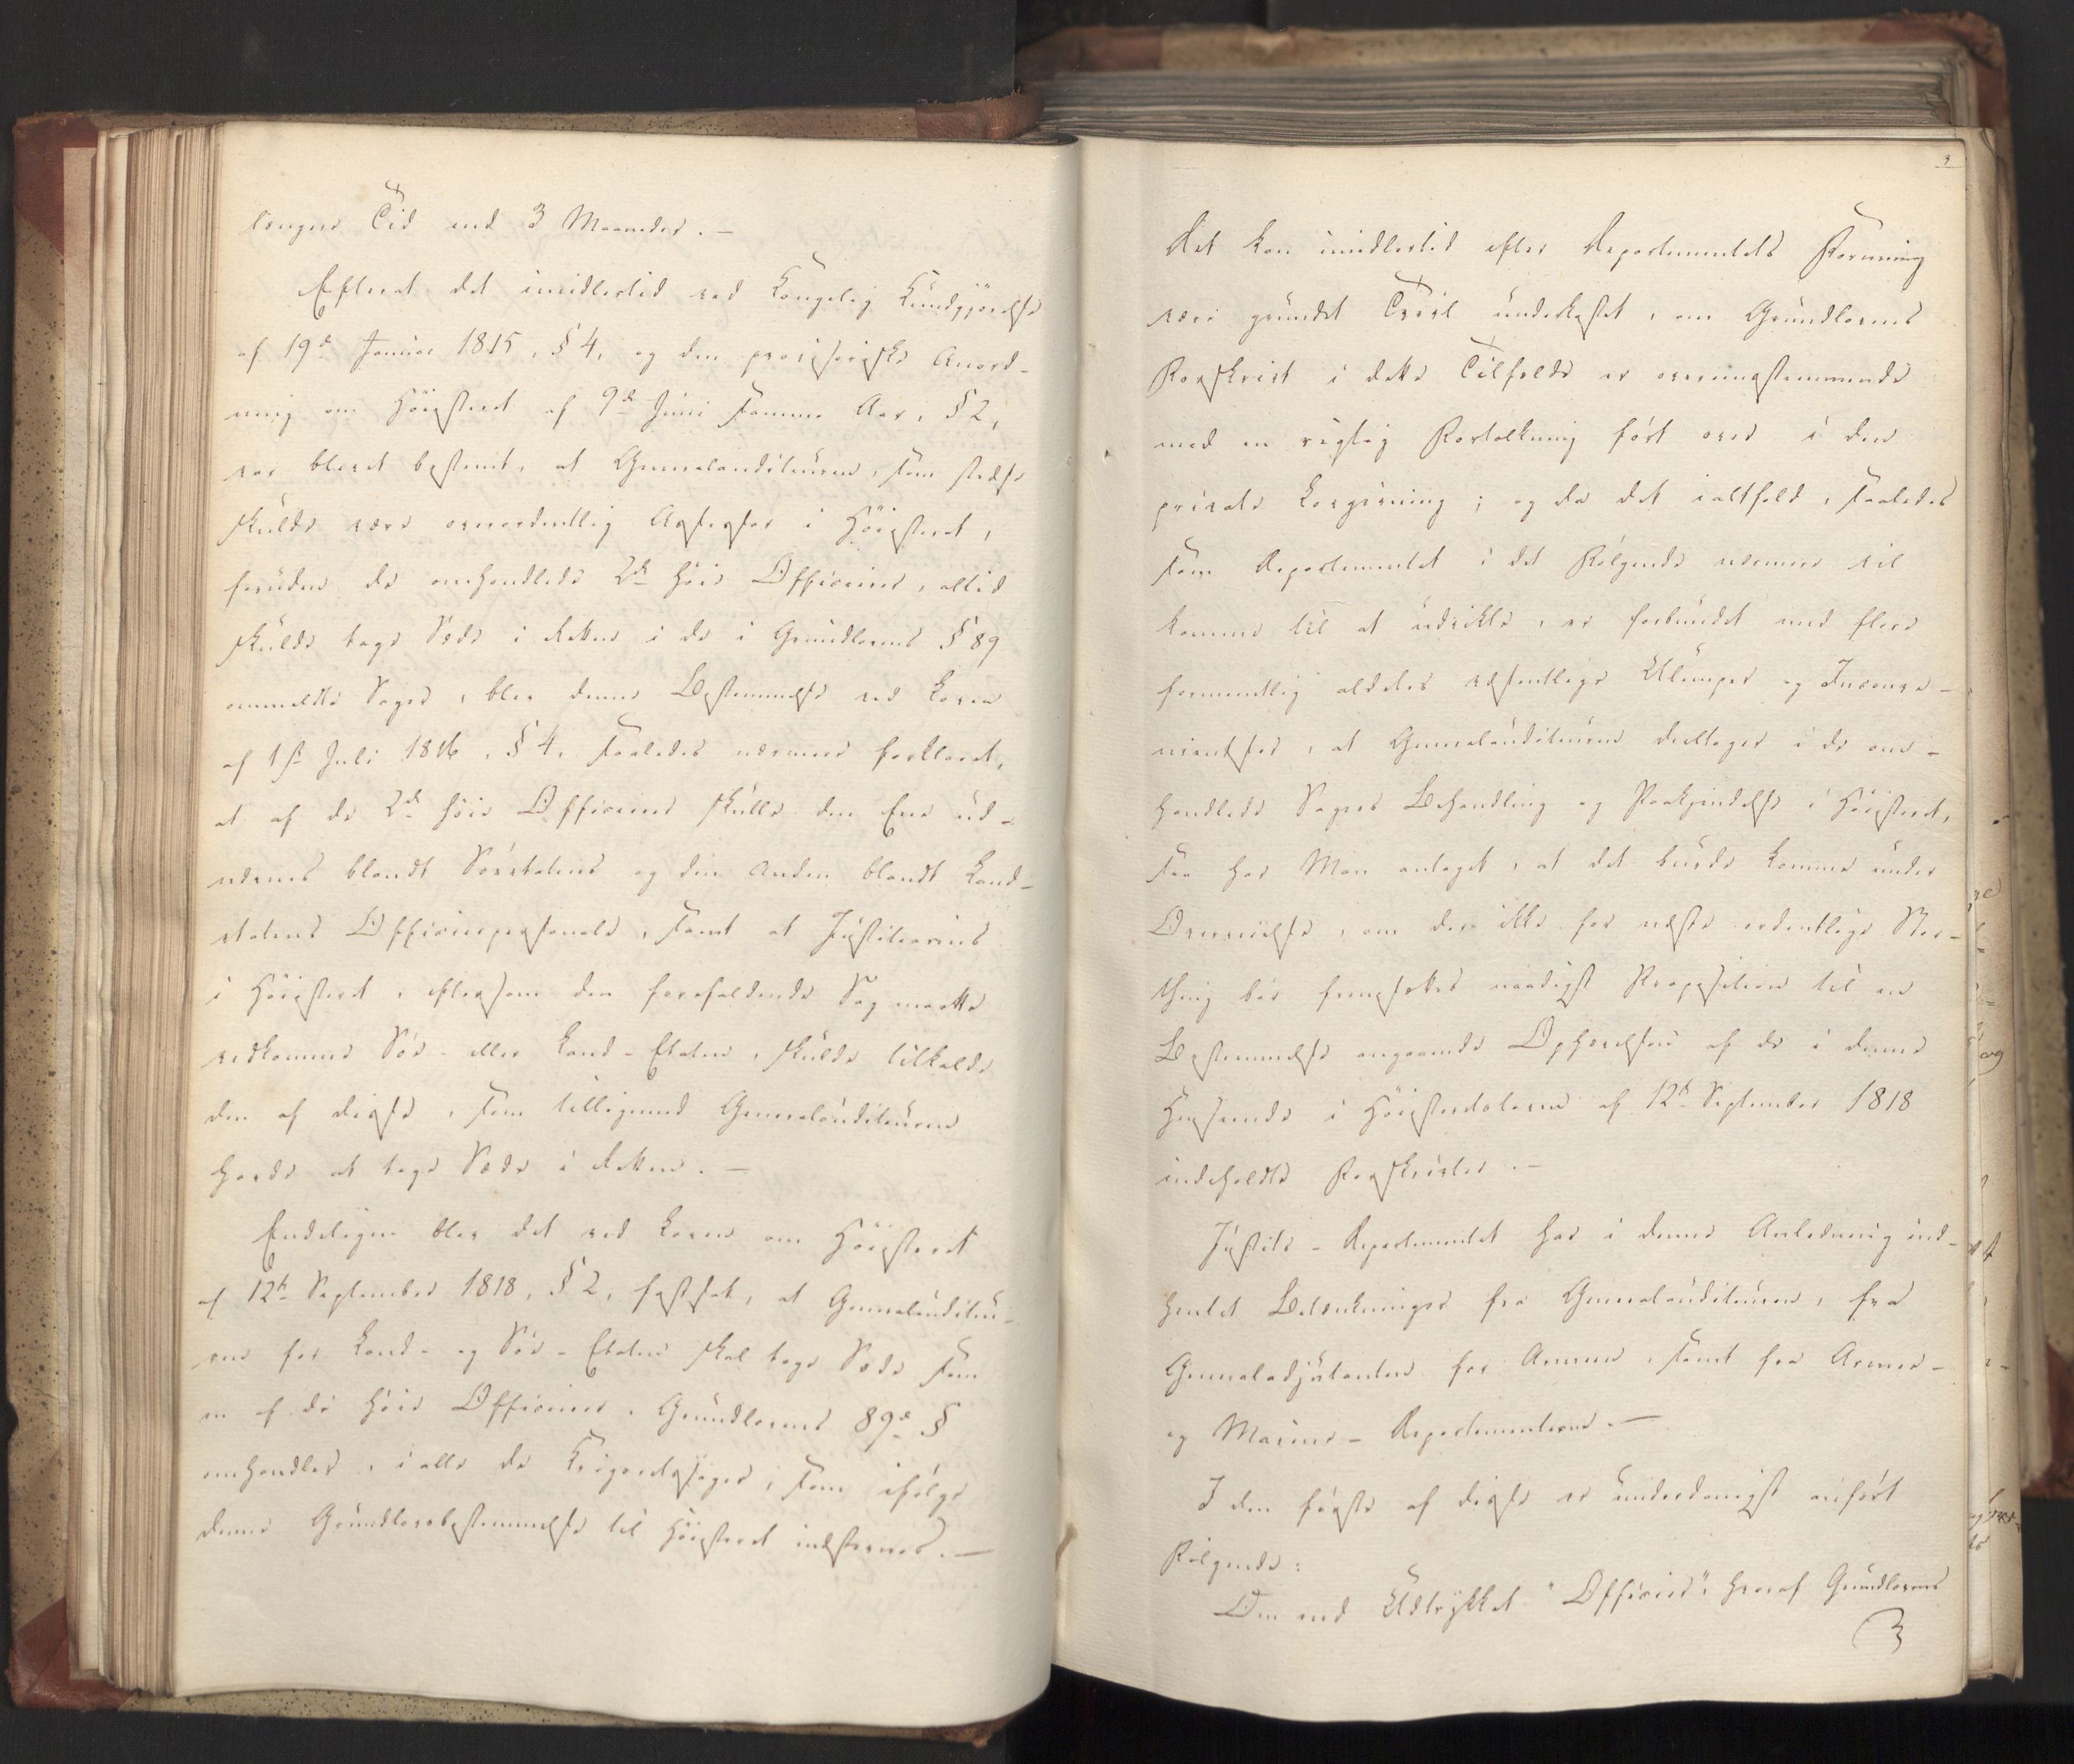 længere Tid end 3 Maaneder. —
Efterat det imidlertid ved Kongelig Kundgjørelse
af 19de Januar 1815, § 4, og den provisoriske Anord-
ning om Høiesteret af 9de Juni samme Aar, § 2,
var blevet bestemt, at Generalauditeuren, som stedse
skulde være overordentlig Assessor i Høiesteret,
foruden de omhandlede 2de høie Officierer, altid
skulde tage Sæde i Retten i de i Grundlovens § 89
ommeldte Sager, blev denne Bestemmelse ved Loven
af 1ste Juli 1816, § 4, saaledes nærmere forklaret,
at af de 2de høie Officierer skulle den Ene ud-
nævnes blandt Søeetatens og den Anden blandt Land-
etatens Officierpersonale, samt at Justitiarius
i Høiesteret, eftersom den forefaldende Sag maatte
vedkomme Søe- eller Land-Etaten, skulde tilkalde
den af disse, som tilligemed Generalauditeuren
havde at tage Sæde i Retten. —
Endeligen blev det ved Loven om Høiesteret
af 12te September 1818, § 2, fastsat, at Generalauditeu-
ren for Land- og Søe-Etaten skal tage Sæde som
en af de høie Officierer, Grundlovens 89de §
omhandler, i alle de Krigsretssager, som ifølge
denne Grundlovsbestemmelse til Høiesteret indstevnes. —
3
Det kan imidlertid efter Departementets Formening
være grundet Tvivl underkastet, om Grundlovens
Forskrivt i dette Tilfælde er overeensstemmende
med en rigtig Fortolkning ført over i den
private Lovgivning; og da det ialtfald, saaledes
som Departementet i det Følgende nærmere vil
komme til at udvikle, er forbundet med flere
formentlig aldeles væsentlige Ulemper og Inconve-
nientser, at Generalauditeuren deeltager i de om-
handlede Sagers Behandling og Paakjendelse i Høiesteret,
saa har Man antaget, at det burde komme under
Overveielse, om der ikke for næste ordentlige Stor-
thing bør fremsættes naadigst Proposition til en
Bestemmelse angaaende Ophævelsen af de i denne
Henseende i Høiesteretsloven af 12te September 1818
indeholdte Forskrivter. —
Justits-Departementet har i denne Anledning ind-
hentet Betænkninger fra Generalauditeuren, fra
Generaladjutanten for Armeen, samt fra Armee-
og Marine-Departementerne. —
I den første af disse er underdanigst anført
Følgende:
Om end Udtrykket "Officier" hvoraf Grundlovens